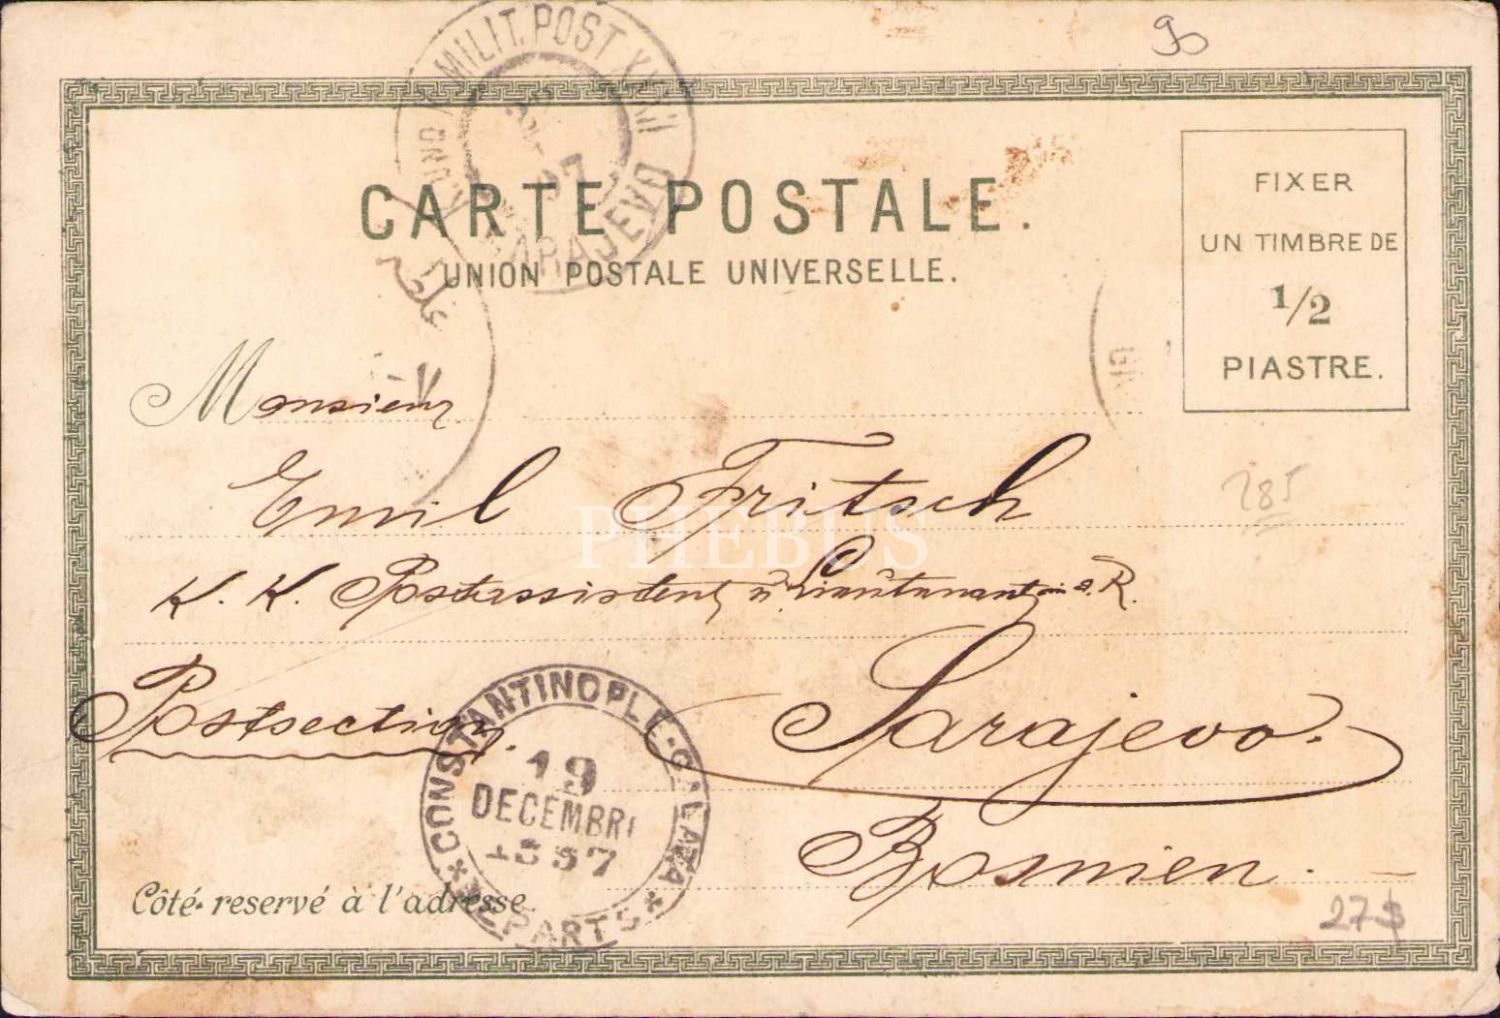 90
K.UND K. MILIT. POST XXXII
97
SARAJEVO
CARTE POSTALE.
UNION POSTALE UNIVERSELLE.
FIXER
UN TIMBRE DE
1/2
PIASTRE.
Monsieur
Emil Fritsch
285
PHEBUS
K. K. Postassistent u Lieutenant i. a. R.
Postsection. Sarajevo.
CONSTANTINOPLE-GALATA
19
DECEMBR
1897
DEPARTS
Bosnien.
Côté reservé à l'adresse